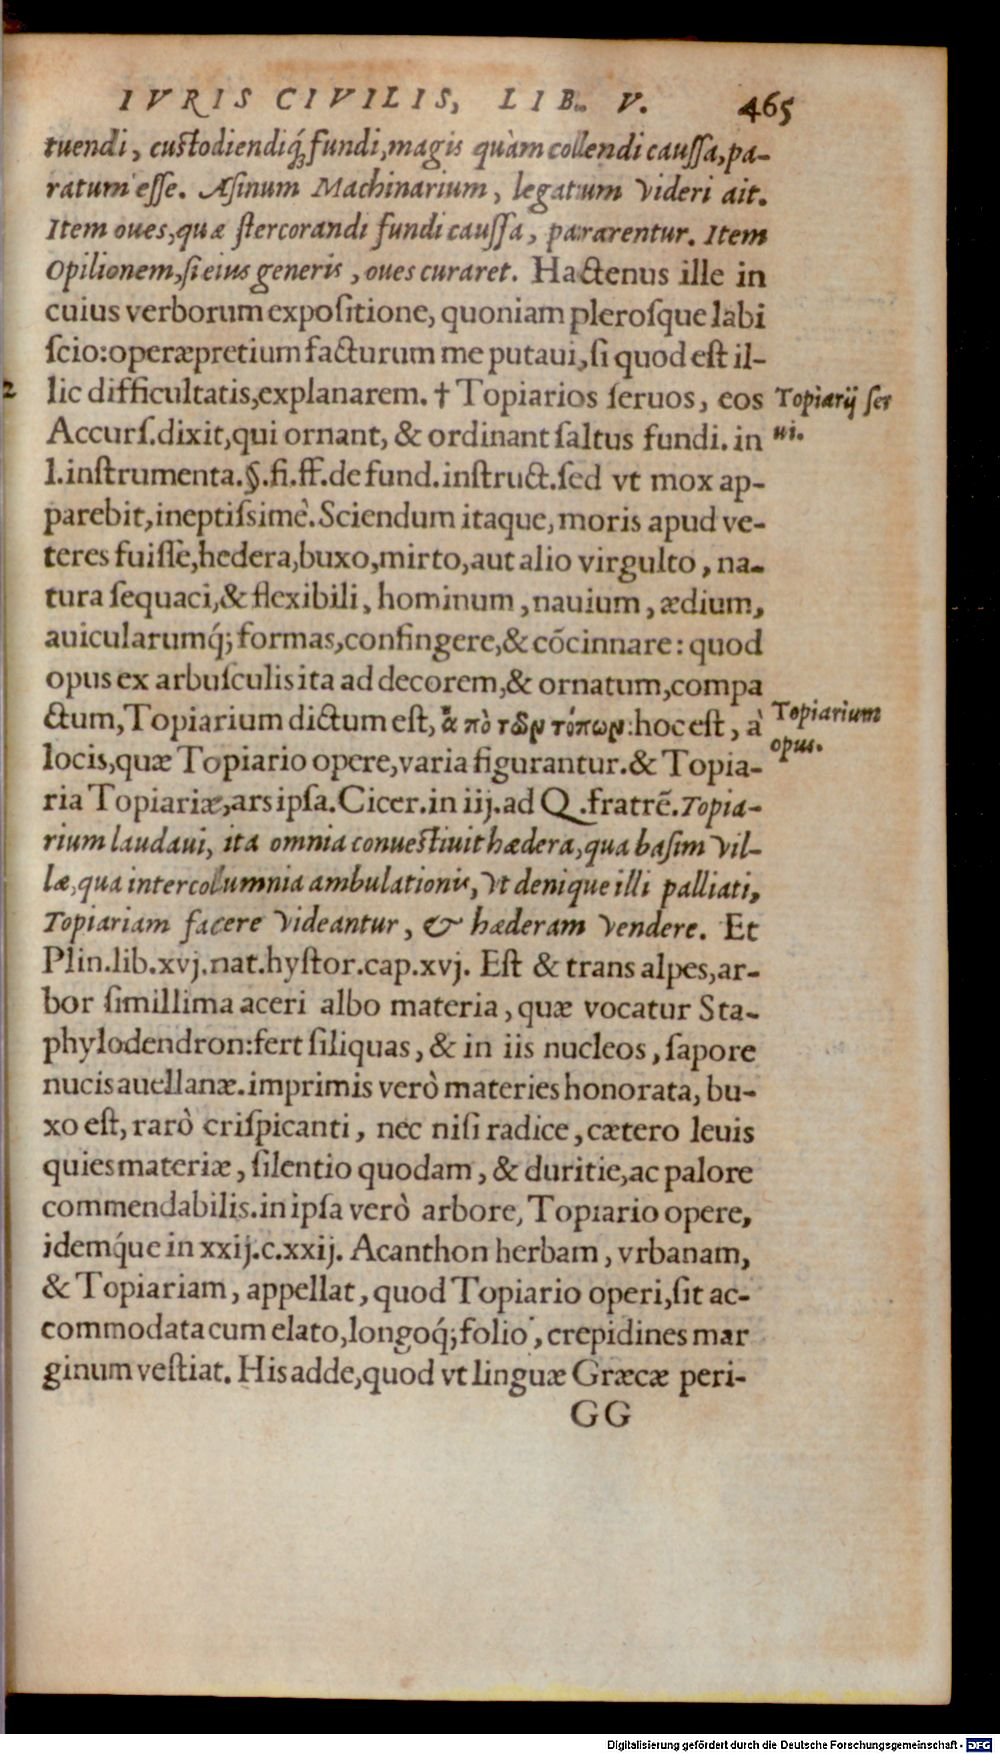 IVRIS CIVILIS, LIB. V. 465
tuendi, custodiendiq́ꝫ fundi, magis quàm collendi caussa, pa-
ratum esse. Asinum Machinarium, legatum videri ait.
Item oues, quæ stercorandi fundi caussa, pararentur. Item
Opilionem, si eius generis, oues curaret. Hactenus ille in
cuius verborum expositione, quoniam plerosque labi
scio: operæpretium facturum me putaui, si quod est il-
2 lic difficultatis, explanarem. † Topiarios seruos, eos
Topiarij ser
Accurs. dixit, qui ornant, & ordinant saltus fundi. in
ui.
l. instrumenta. §. fi. ff. de fund. instruct. sed vt mox ap-
parebit, ineptissimè. Sciendum itaque, moris apud ve-
teres fuisse, hedera, buxo, mirto, aut alio virgulto, na-
tura sequaci, & flexibili, hominum, nauium, ædium,
auicularumq́; formas, confingere, & cõcinnare: quod
opus ex arbusculis ita ad decorem, & ornatum, compa
ctum, Topiarium dictum est, ἀπὸ τῶν τόπων: hoc est, à
Topiarium
opus.
locis, quæ Topiario opere, varia figurantur. & Topia-
ria Topiariæ, ars ipsa. Cicer. in iij. ad Q. fratrẽ. Topia-
rium laudaui, ita omnia conuestiuit hædera, qua basim vil-
læ, qua intercollumnia ambulationis, vt denique illi palliati,
Topiariam facere videantur, & hæderam vendere. Et
Plin. lib. xvj. nat. hystor. cap. xvj. Est & trans alpes, ar-
bor simillima aceri albo materia, quæ vocatur Sta-
phylodendron: fert siliquas, & in iis nucleos, sapore
nucis auellanæ. imprimis verò materies honorata, bu-
xo est, rarò crispicanti, nec nisi radice, cætero leuis
quies materiæ, silentio quodam, & duritie, ac palore
commendabilis. in ipsa verò arbore, Topiario opere,
idemq́ue in xxij. c. xxij. Acanthon herbam, vrbanam,
& Topiariam, appellat, quod Topiario operi, sit ac-
commodata cum elato, longoq́; folio, crepidines mar
ginum vestiat. His adde, quod vt linguæ Græcæ peri-
GG
Digitalisierung gefördert durch die Deutsche Forschungsgemeinschaft - DFG